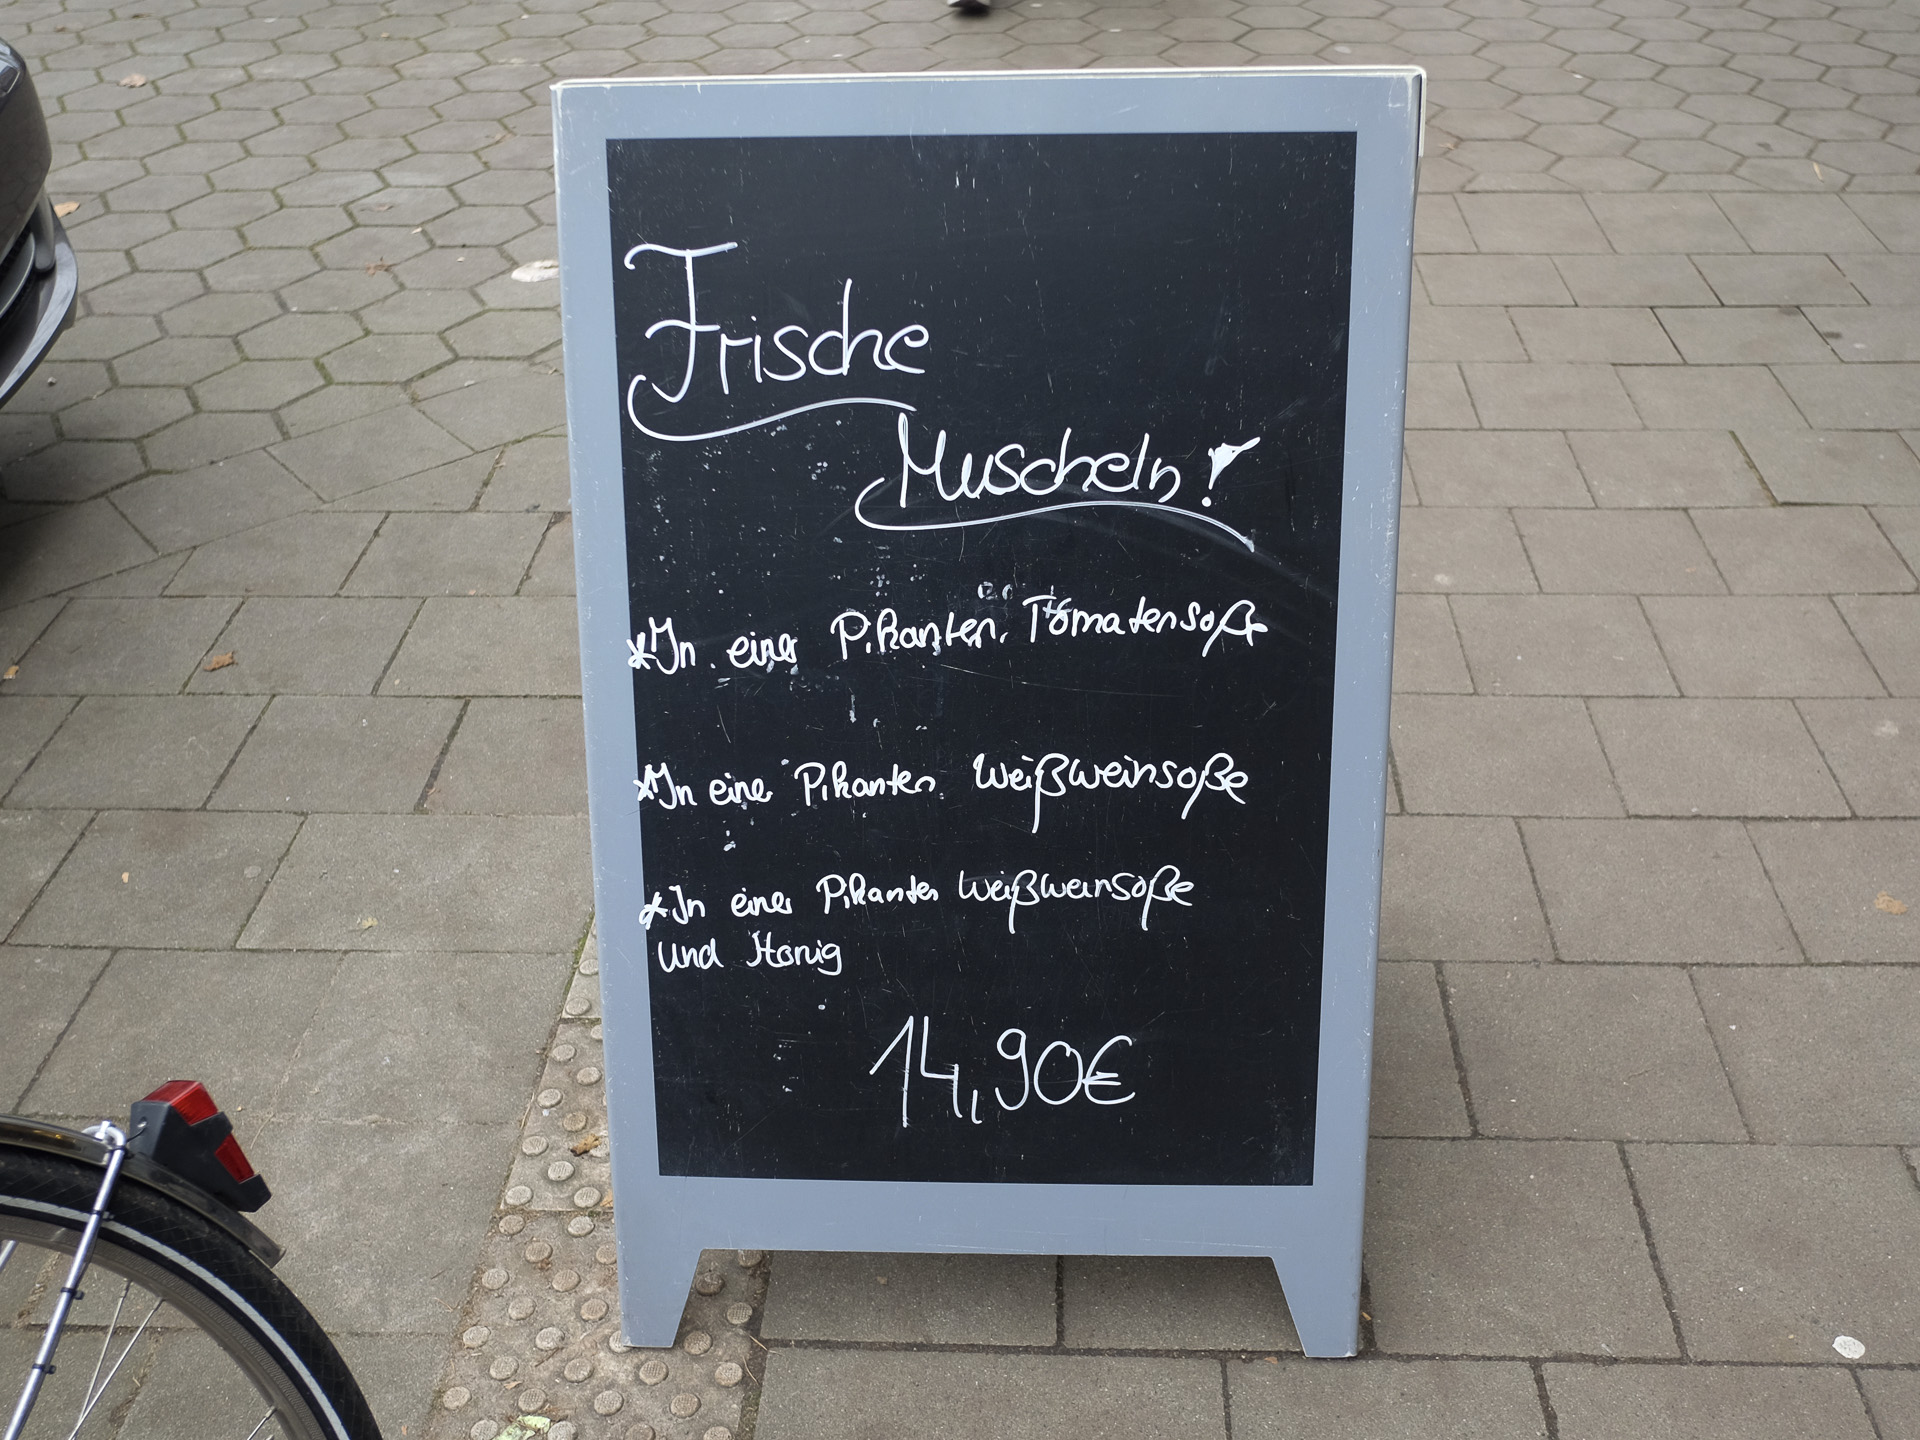 Frische
Muscheln!
*In einer Pikanten Tomatensoße
*In einer Pikanten Weißweinsoße
*In einer Pikanten Weißweinsoße
und Honig
14,90€